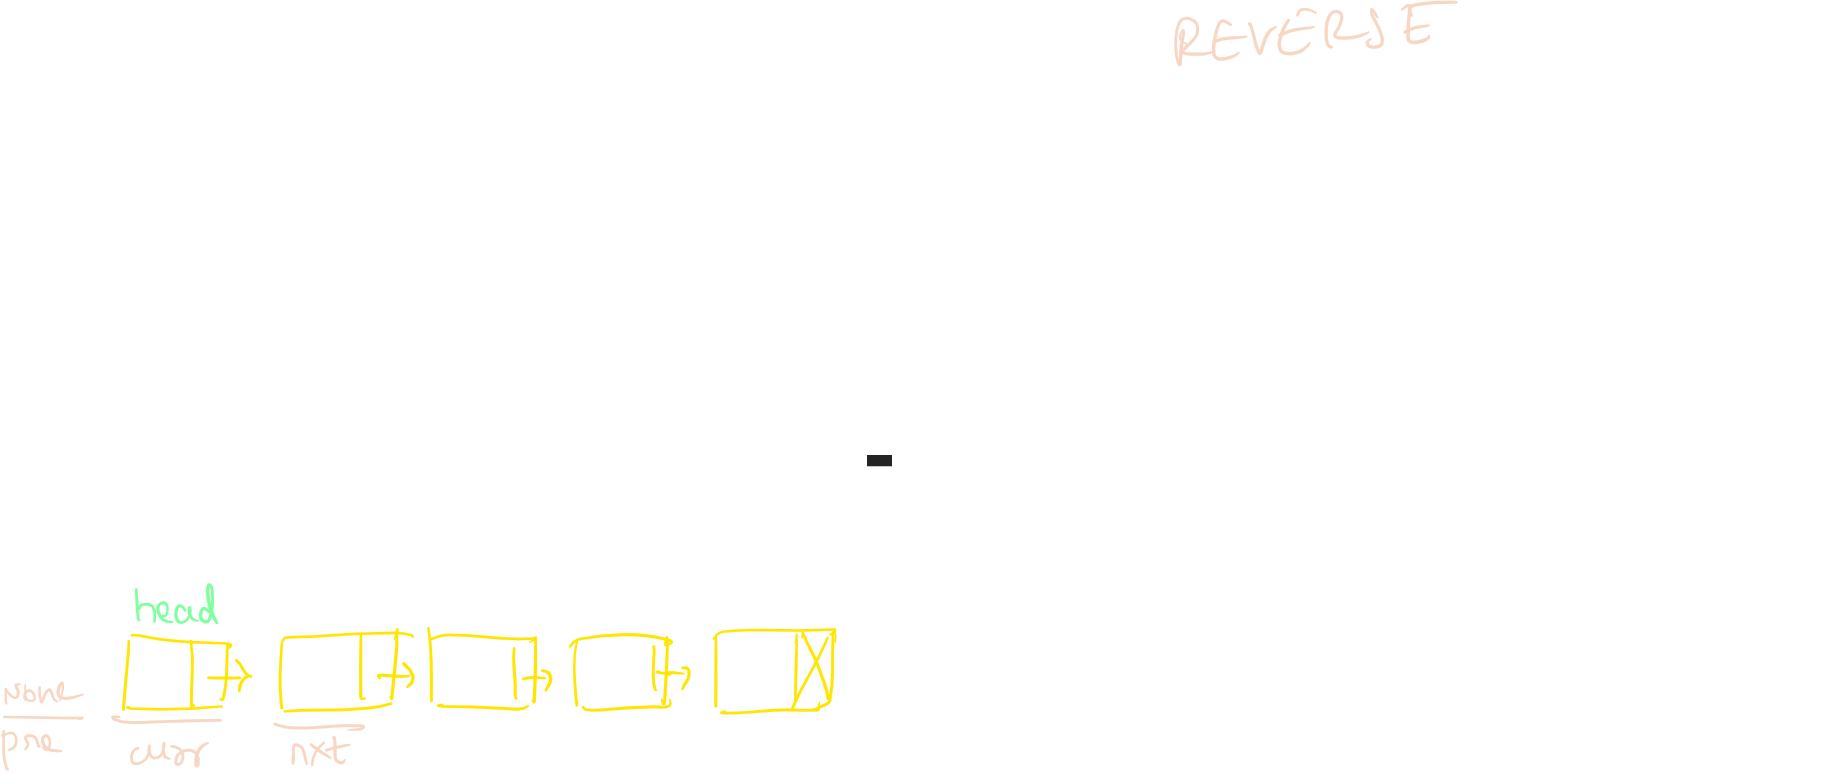 REVERSE
head
None
pre curr nxt